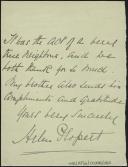 It was the act of a being
true Neighbour, and we
both thank you so much.
My brother also sends his
Compliments and Gratitude
Yours very sincerely
Helen